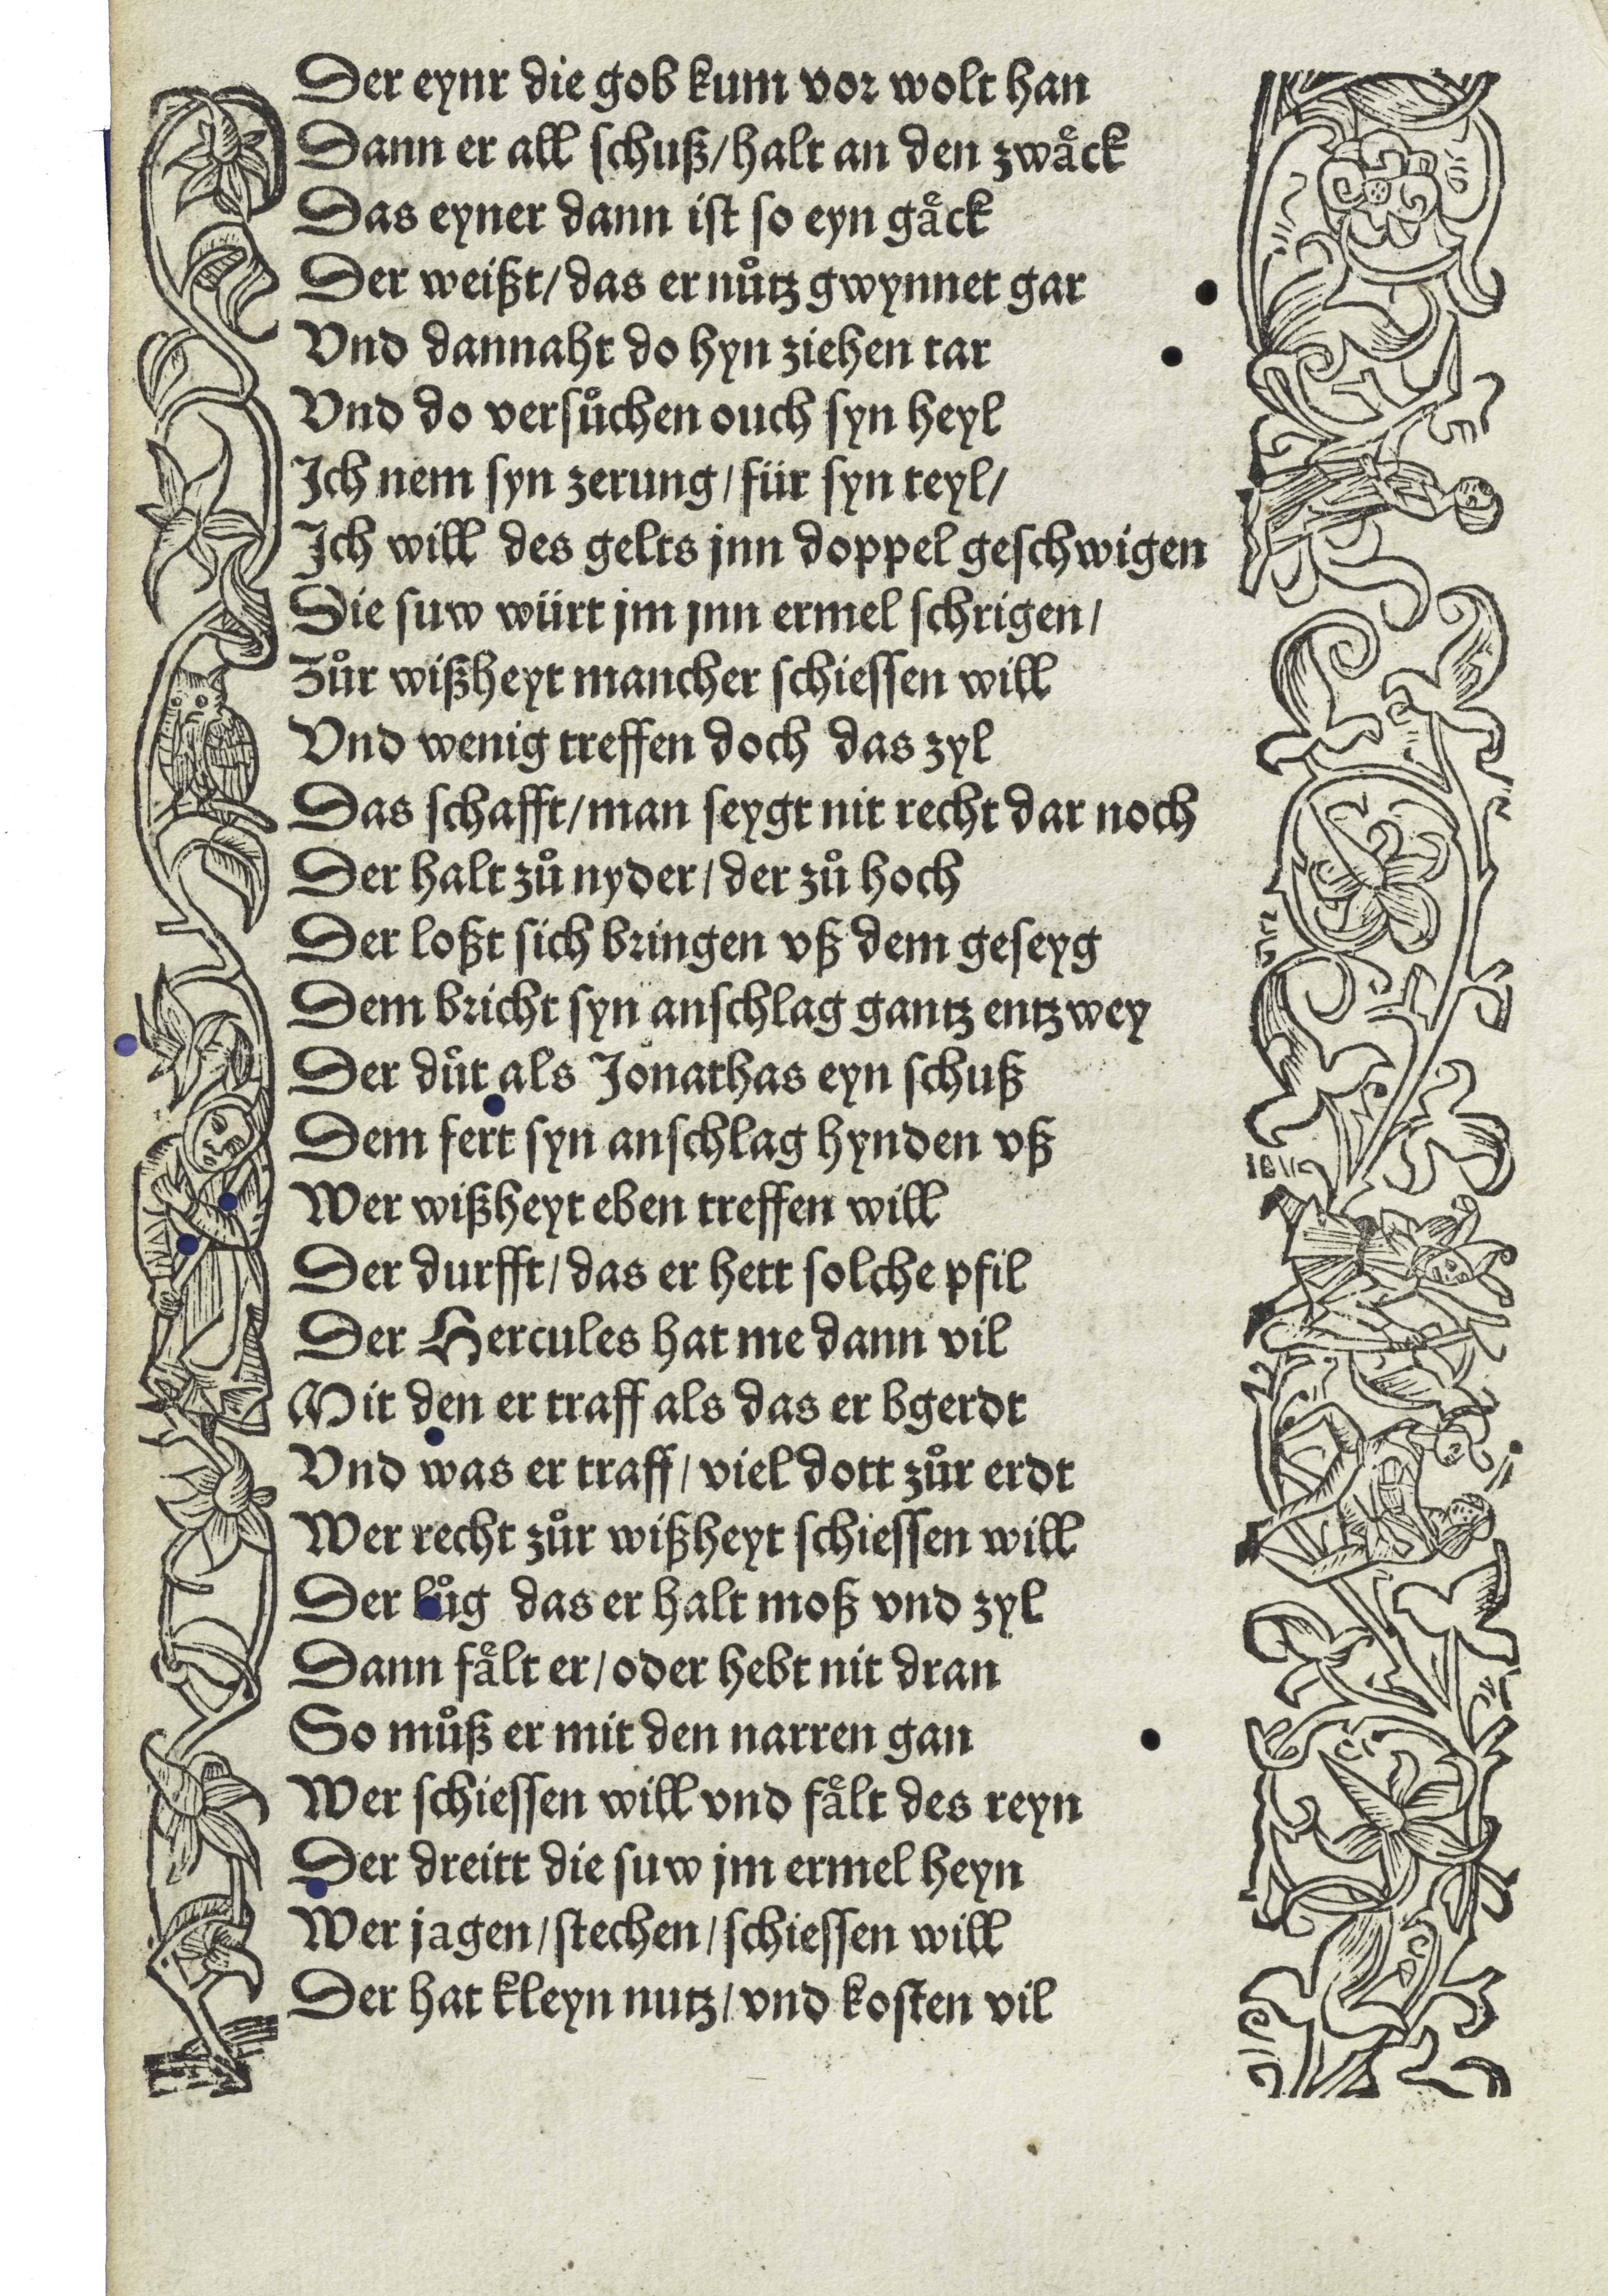 Der eynr die gob kum vor wolt han
Dann er all schuß/halt an den zwaͤck
Das eyner dann ist so eyn gaͤck
Der weißt/das er nuͦtz gwynnet gar
Vnd dannaht do hyn ziehen tar
Vnd do versuͦchen ouch syn heyl
Ich nem syn zerung/für syn teyl/
Ich will des gelts jnn doppel geschwigen
Die suw würt jm jnn ermel schrigen/
Zuͦr wißheyt mancher schiessen will
Vnd wenig treffen doch das zyl
Das schafft/man seygt nit recht dar noch
Der halt zuͦ nyder/der zuͦ hoch
Der loßt sich bringen vß dem geseyg
Dem bricht syn anschlag gantz entzwey
Der duͦt als Jonathas eyn schuß
Dem fert syn anschlag hynden vß
Wer wißheyt eben treffen will
Der durfft/das er hett solche pfil
Der Hercules hat me dann vil
Mit den er traff als das er bgerdt
Vnd was er traff/viel dott zuͦr erdt
Wer recht zuͦr wißheyt schiessen will
Der luͦg das er halt moß vnd zyl
Dann faͤlt er/oder hebt nit dran
So muͦß er mit den narren gan
Wer schiessen will vnd faͤlt des reyn
Der dreitt die suw jm ermel heyn
Wer jagen/stechen/schiessen will
Der hat kleyn nutz/vnd kosten vil